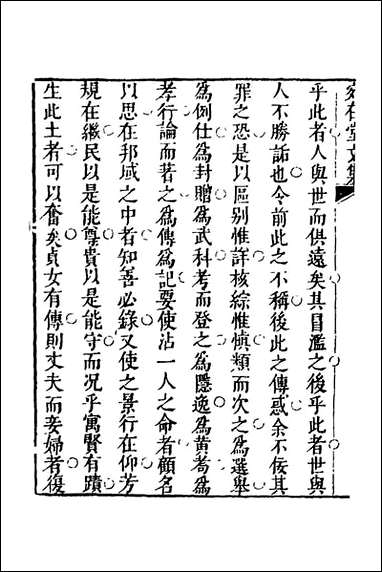 乎此者人與世而俱遠矣其冒濫之後乎此者世與
人不勝詬也今前此之不稱後此之傳惑余不佞其
罪之恐是以區别惟詳核綜惟慎類而次之爲選舉
爲例仕爲封贈爲武科考而登之爲隱逸爲黄耈爲
孝行論而著之爲傳爲記要使沾一人之命者顧名
以思在邦域之中者知吾必錄又使之景行在仰芳
規在繼民以是能尊貴以是能守而况乎寓賢有蹟
生此土者可以奮矣貞女有傳則丈夫而妾婦者復